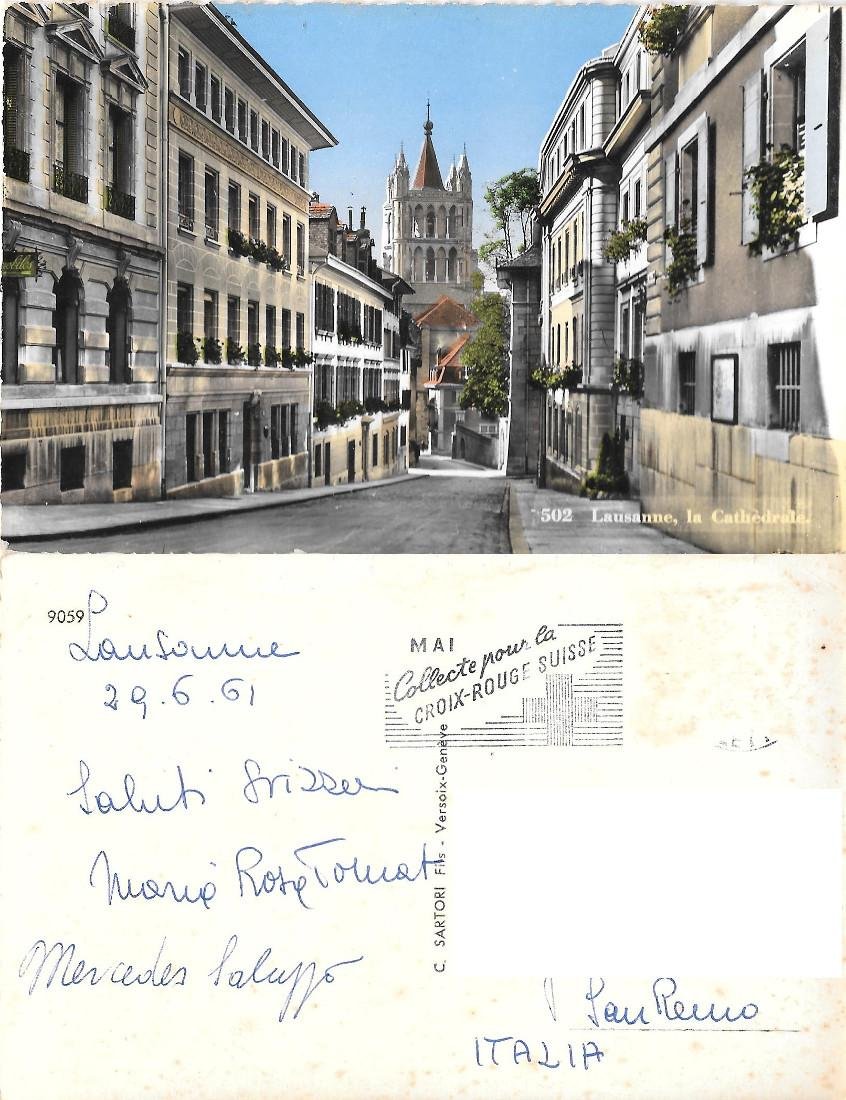 502 Lausanne, la Cathédrale.
9059
Lausanne
29.6.61
MAI
Collecte pour la
CROIX-ROUGE SUISSE
Saluti Svizzeri
Maria Rosa Tomat
Mercedes Saluzzo
C. SARTORI Fils - Versoix-Genève
San Remo
ITALIA